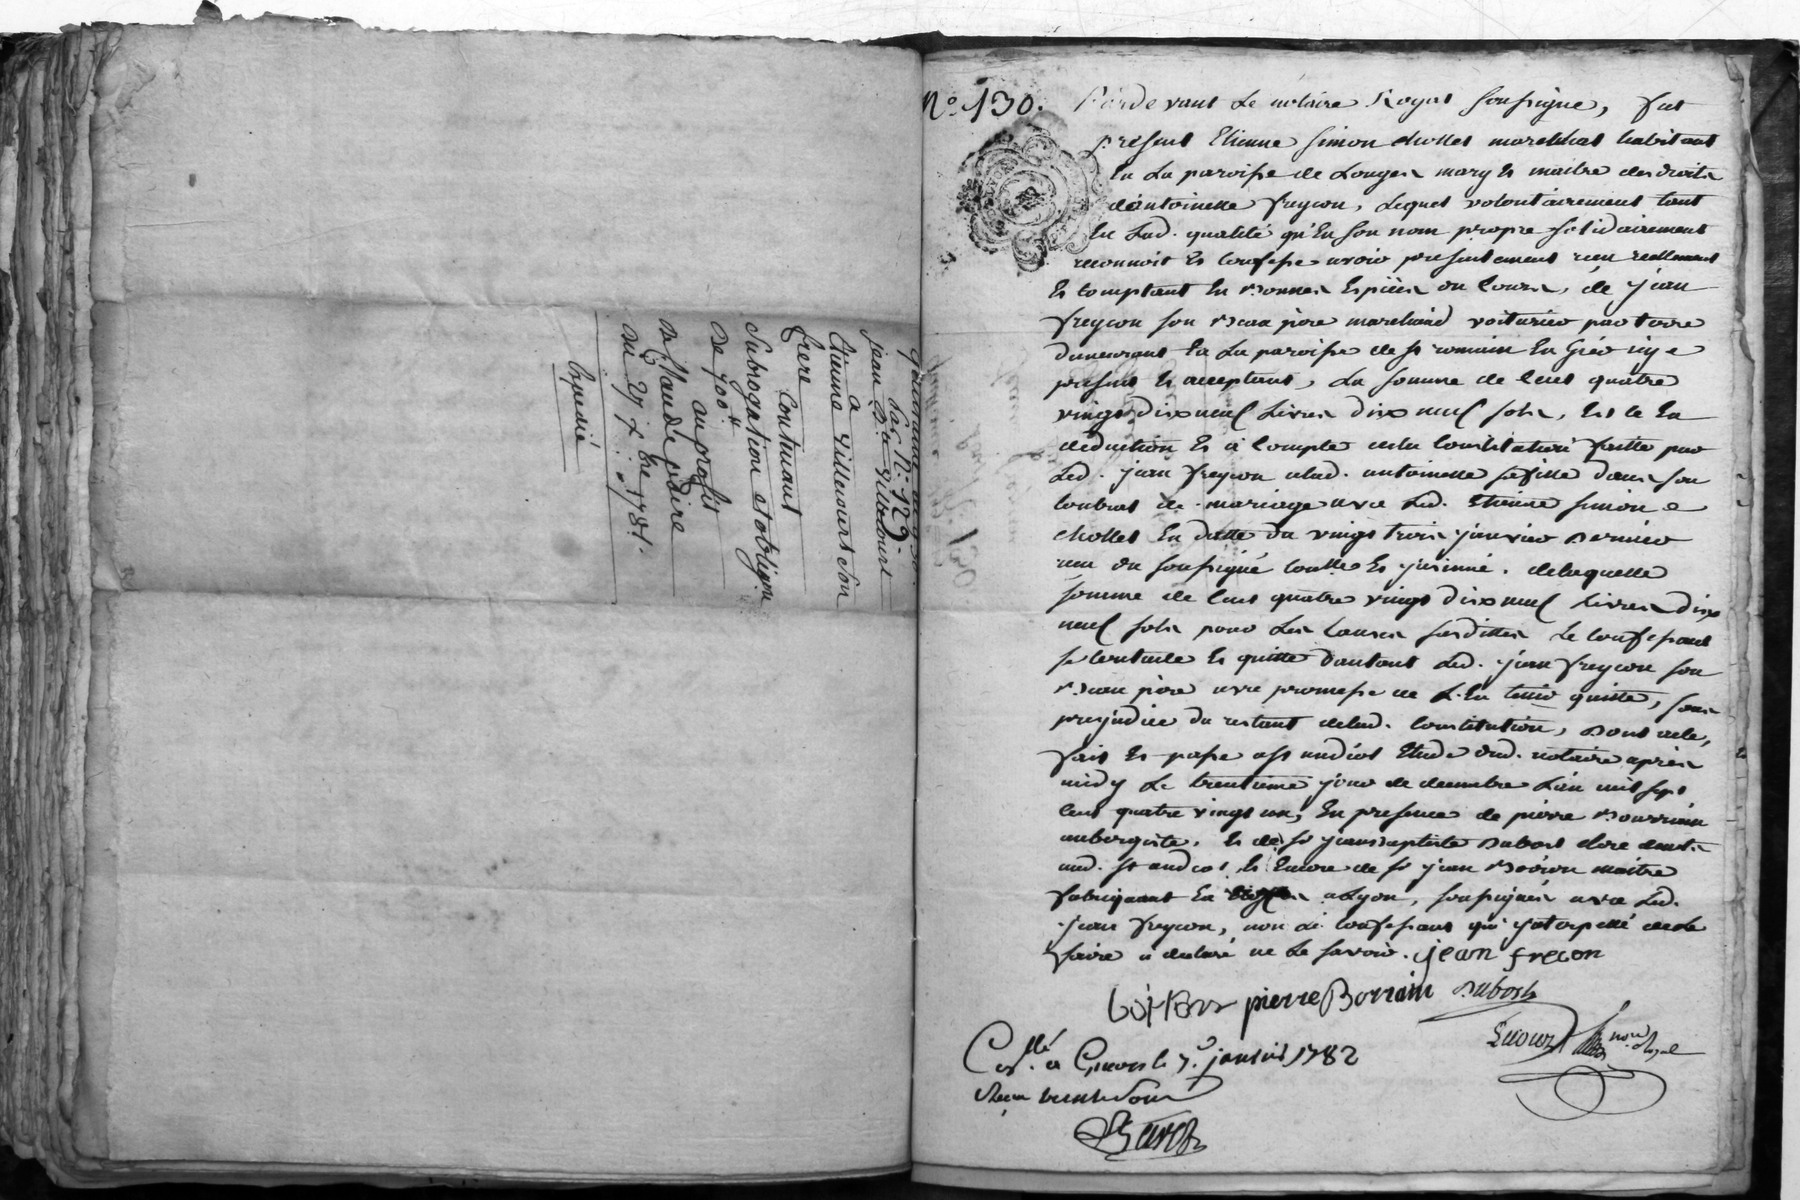 Quittance du 30
Xbre N: 129.
jean d.le villecourt
a
Etienne Villecourt son
frere
Contenant
Subrogation et obligã͠on
de 700#
au profit
de Claude pidiere
du 27 Xbre 1781.
Expedié
N.° 130.
Pardevant Le notaire Royal soussigné, fut
présent Etienne simon chollet maréchal habitant
En La paroisse de Longes mary et maitre des droits
d'antoinette freyçon, Lequel volontairement tant
En Lad. qualité qu'En son nom propre solidairement
reconnoit Et confesse avoir presentement reçu reellement
Et comptant En Bonnes Espèces du Cours, de jean
freyçon son Beau père marchand voiturier par terre
demeurant En La paroisse de st romain En Gier icy
présent Et acceptant, La somme de cent quatre
vingt dix neuf Livres dix neuf sols, Et ce En
déduction Et à compte de la Constitution faitte par
Led. jean freyçon a lad. antoinette sa fille dans son
contrat de mariage avec Led. Etienne simon
chollet En datte du vingt trois janvier Dernier
reçu du soussigné controllé Et insinué. de laquelle
somme de cent quatre vingt dix neuf Livres dix
neuf sols pour Les causes susdittes Le Confessant
se contente Et quitte d'autant Led. jean freyçon son
Beau père avec promesse de L'En tenir quitte, sans
prejudice du restant de lad. Constitution, Dont acte,
fait Et passé a st andéol Etude dud. notaire après
midy Le trentieme jour de decembre L'an mil sept
cent quatre vingt un, En presence de pierre Bourrin
aubergiste, Et de sr jean baptiste Dubost clerc
aud. st andéol, Et Encore de sr jean maitre
fabriquant En a Lyon, soussignés avec Led.
jean freyçon, non Le Confessant qui interpellé de le
faire a déclaré ne Le savoir. jean freçon
pierre Borrain Dubost
nore Royal
Con.llé a Givors le 7.e janvier 1782
Reçu trente sous